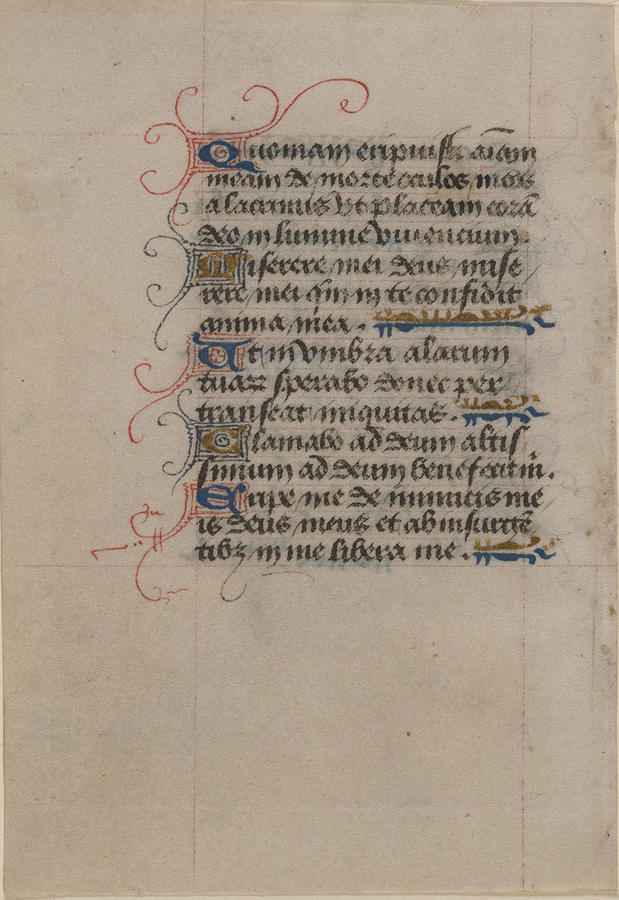 Quoniam eripuisti aīam
meam de morte oculos meos
a lacrimis Vt placeam corā
deo in lumine viuencium.
Miserere mei deus mise
rere mei qm̄ in te confidit
anima mea.
Et in vmbra alarum
tuaꝝ sperabo donec per
transeat iniquitas.
Clamabo ad deum altis
simum ad deum benefecit m̄.
Eripe me de inimicis me
is deus meus et ab insurgē
tibꝫ in me libera me.